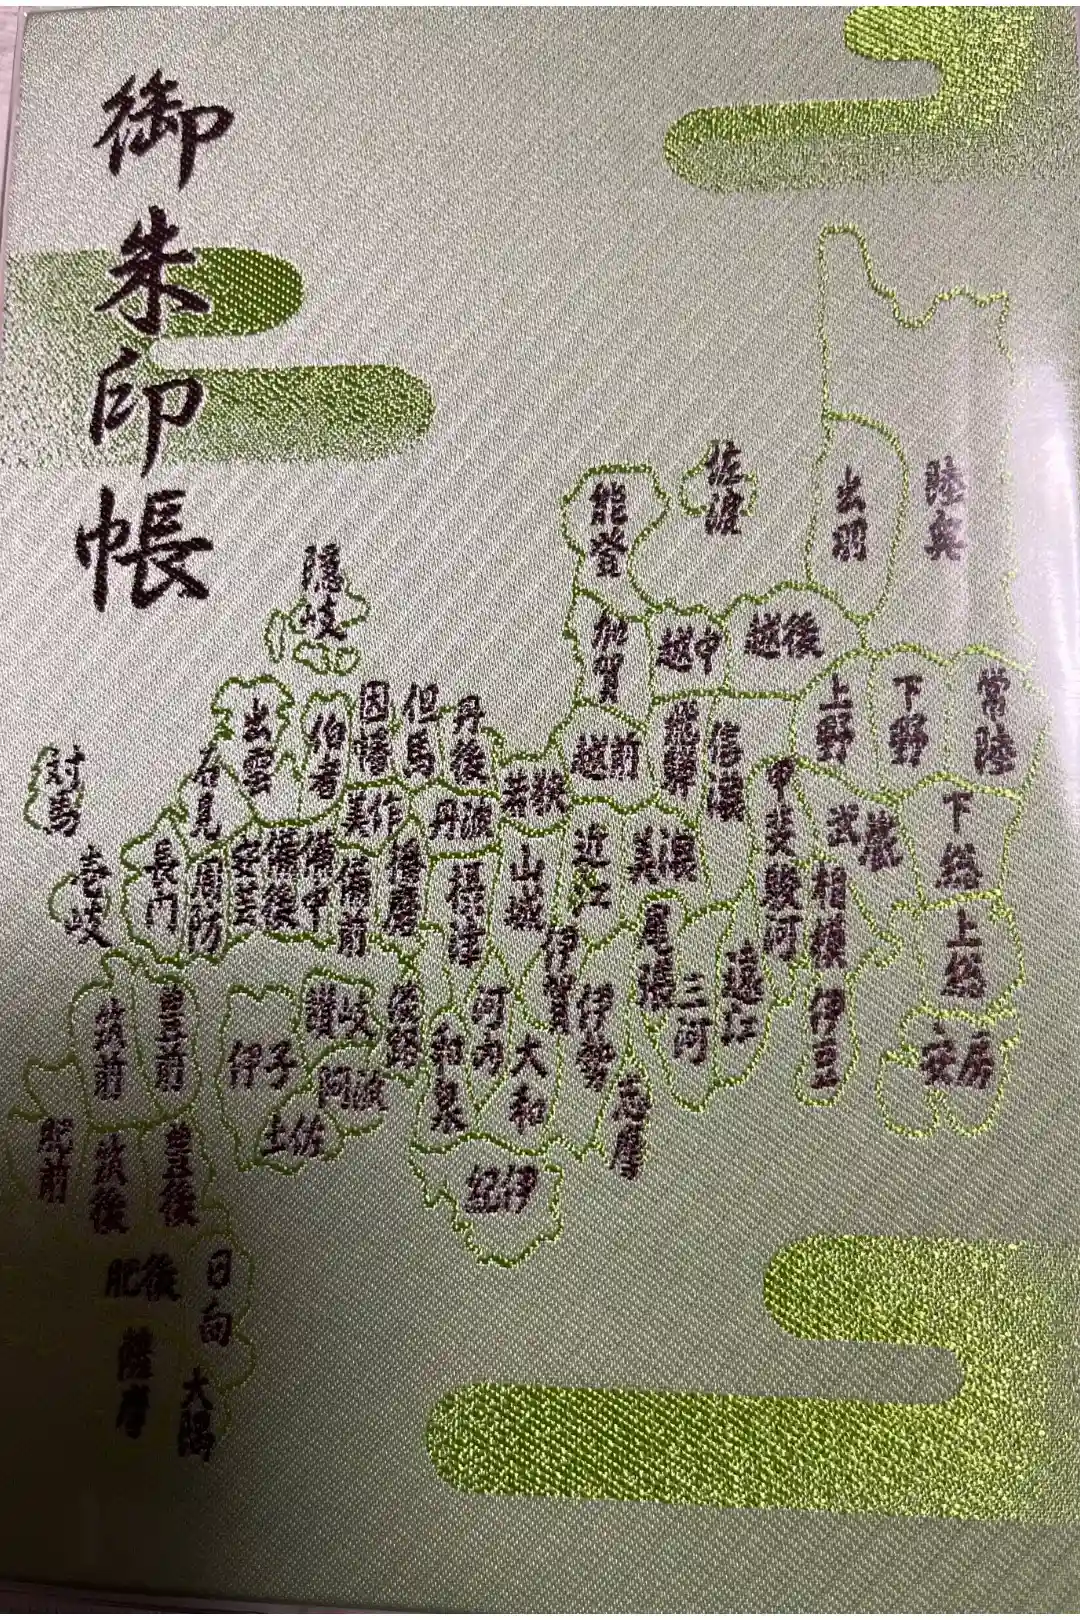 御朱印帳
陸奥
出羽
佐渡
能登
加賀
越中
越後
常陸
下野
上野
信濃
飛騨
越前
若狭
丹後
但馬
因幡
伯耆
出雲
隠岐
石見
長門
周防
安芸
備後
備中
備前
美作
播磨
丹波
摂津
山城
近江
美濃
甲斐
武蔵
下総
上総
安房
相模
駿河
伊豆
遠江
三河
尾張
伊賀
伊勢
志摩
大和
河内
和泉
紀伊
讃岐
阿波
伊予
土佐
対馬
壱岐
筑前
豊前
肥前
筑後
豊後
肥後
日向
薩摩
大隅